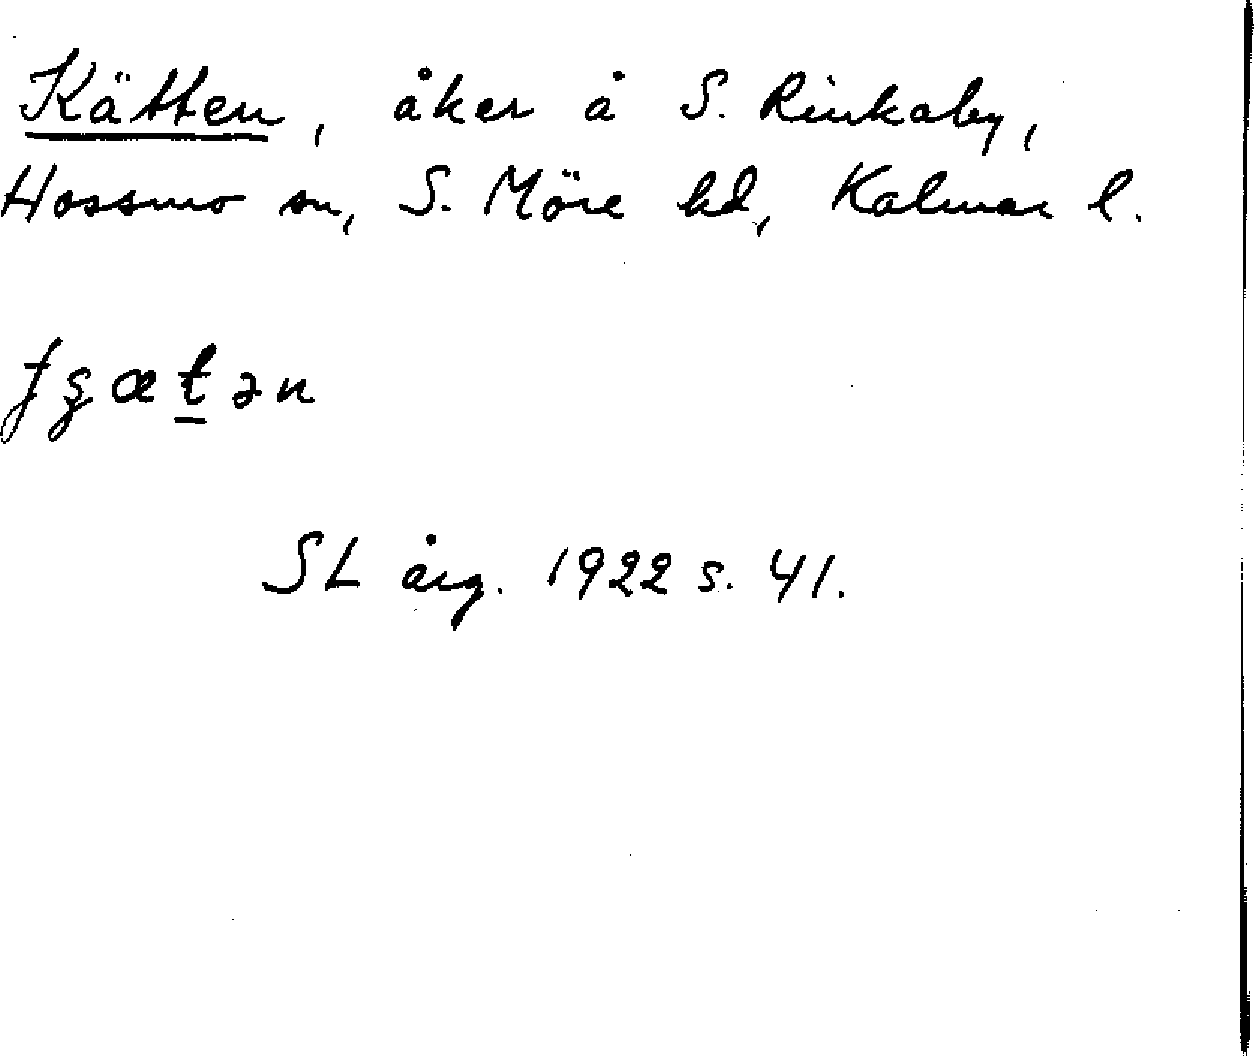 Kätten, åker å S. Rinkaby,
Hossmo sn, S. Möre hd, Kalmar l.
ɟʂætən
SL årg. 1922 s. 41.